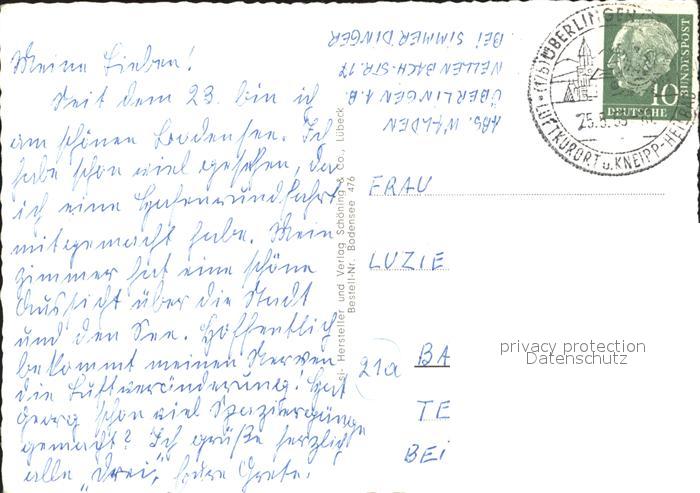 Meine Lieben!
Seit dem 23. bin ich
am schönen Bodensee. Ich
habe schon viel gesehen, da
ich eine Hafenrundfahrt
mitgemacht habe. Mein
Zimmer hat eine schöne
Aussicht über die Stadt
und den See. Hoffentlich
bekommt meinen Nerven
die Luftveränderung! Hat
Georg schon viel Spaziergänge
gemacht? Ich grüße herzlich
alle „Drei", Eure Grete.
ABS. WALDEN
ÜBERLINGEN A.B.
NELLENBACH-STR. 17
BEI SIMMERDINGER
Hersteller und Verlag Schöning & Co., Lübeck
Bestell-Nr. Bodensee 476
(17b) ÜBERLINGEN
25.5.
LUFTKURORT u. KNEIPP-HEILBAD
10
DEUTSCHE
BUNDESPOST
FRAU
LUZIE
21a BA
TE
BEI
privacy protection
Datenschutz